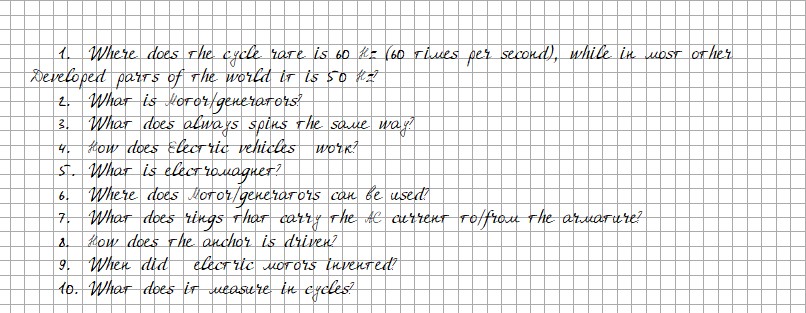 1. Where does the cycle rate is 60 Hz (60 times per second), while in most other
Developed parts of the world it is 50 Hz?
2. What is Motor/generators?
3. What does always spins the same way?
4. How does Electric vehicles work?
5. What is electromagnet?
6. Where does Motor/generators can be used?
7. What does rings that carry the AC current to/from the armature?
8. How does the anchor is driven?
9. When did electric motors invented?
10. What does it measure in cycles?